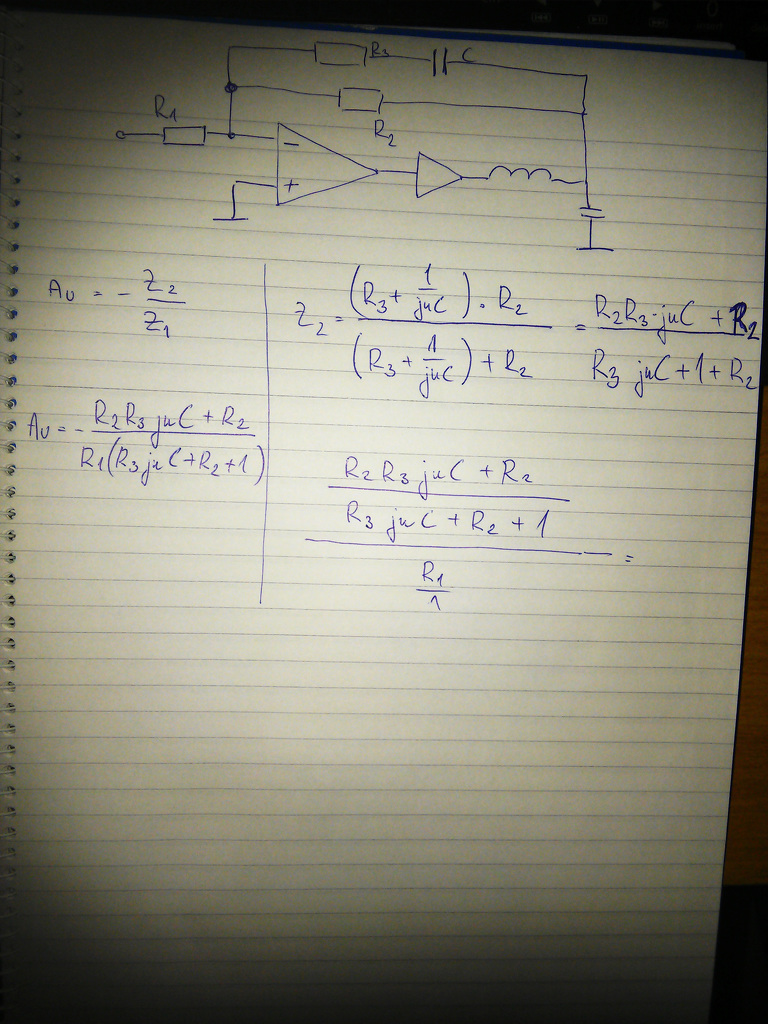 R3 C
R1
R2
−
+
Au = - Z2/Z1
Z2 = ((R3 + 1/juC) · R2)/((R3 + 1/juC) + R2) = (R2R3·juC + R2)/(R3 juC + 1 + R2)
Au = - (R2R3 juC + R2)/(R1(R3juC + R2 + 1))
((R2R3 juC + R2)/(R3 juC + R2 + 1))/(R1/1) =